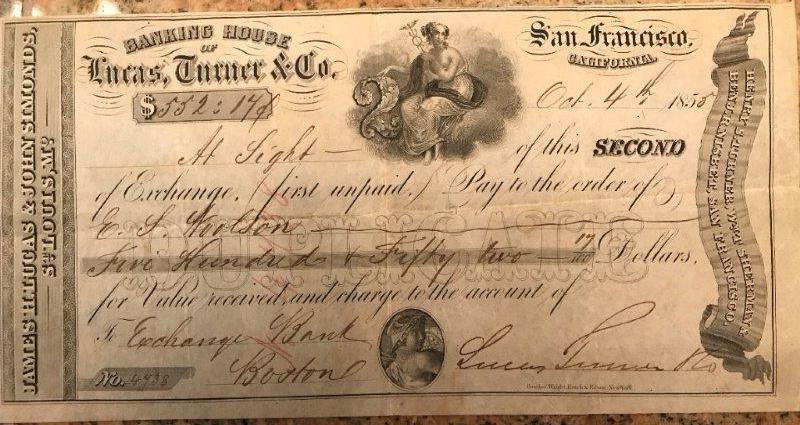 BANKING HOUSE
OF
Lucas, Turner & Co.
$552:17/
San Francisco,
CALIFORNIA.
Oct. 4th 1855
At Sight of this SECOND
of Exchange, (first unpaid,) Pay to the order of
E. S. Woolson
DUPLICATE
Five Hundred & Fifty two 17/100 Dollars,
for Value received, and charge to the account of
To Exchange Bank
Boston
Lucas Turner & Co
No. 4938
JAMES H. LUCAS & JOHN SIMONDS,
ST. LOUIS, MO.
HENRY S. TURNER, WM. T. SHERMAN &
BENJ. R. NISBET, SAN FRANCISCO.